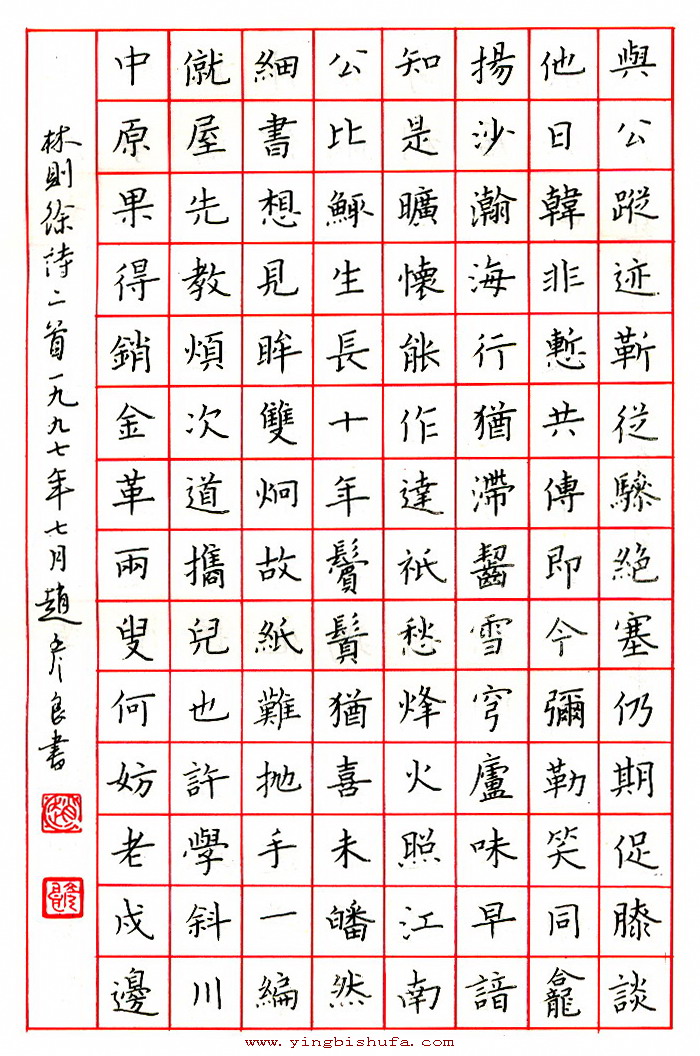 與公蹤迹靳從驂絕塞仍期促膝談
他日韓非慙共傳即今彌勒笑同龕
揚沙瀚海行猶滯齧雪穹廬味早諳
知是曠懷能作達祇愁烽火照江南
公比鯫生長十年鬢鬒猶喜未皤然
細書想見眸雙炯故紙難拋手一編
僦屋先教煩次道攜兒也許學斜川
中原果得銷金革兩叟何妨老戍邊
林則徐詩二首一九九七年七月趙彥良書
www.yingbishufa.com